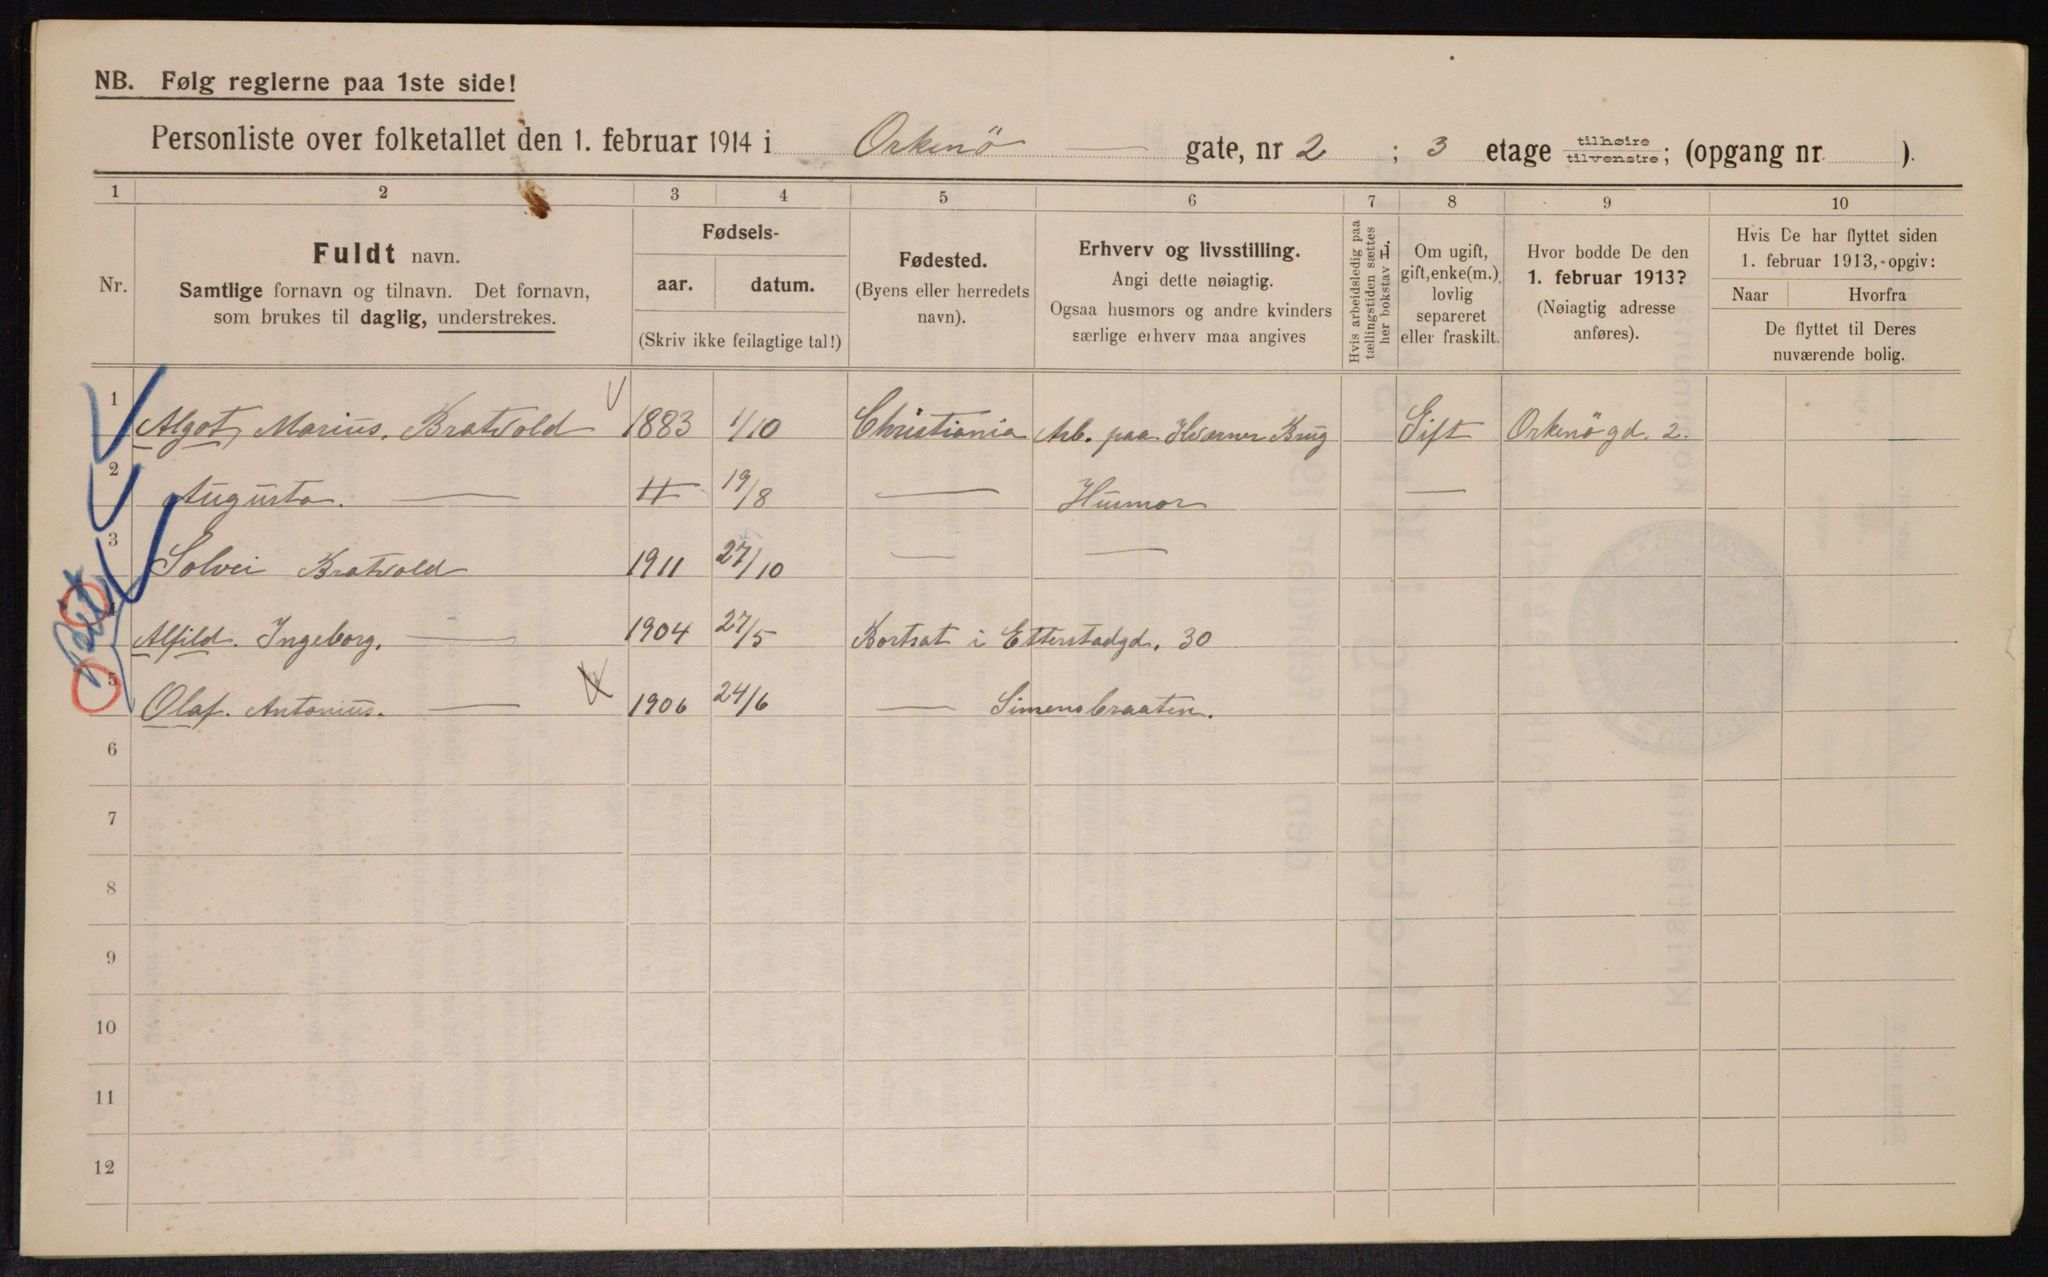 NB. Følg reglerne paa 1ste side!
Personliste over folketallet den 1. februar 1914 i Orkenö — gate, nr 2 ; 3 etage tilhøire tilvenstre; (opgang nr. ).
1 2 3 4 5 6 7 8 9 10
Nr.
Fuldt navn.
Samtlige fornavn og tilnavn. Det fornavn,
som brukes til daglig, understrekes.
Fødsels-
aar. datum.
(Skriv ikke feilagtige tal!)
Fødested.
(Byens eller herredets
navn).
Erhverv og livsstilling.
Angi dette nøiagtig.
Ogsaa husmors og andre kvinders
særlige erhverv maa angives
Hvis arbeidsledig paa
tællingstiden sættes
her bokstav L.
Om ugift,
gift, enke(m.),
lovlig
separeret
eller fraskilt.
Hvor bodde De den
1. februar 1913?
(Nøiagtig adresse
anføres).
Hvis De har flyttet siden
1. februar 1913, opgiv:
Naar Hvorfra
De flyttet til Deres
nuværende bolig.
1 Algot, Marius, Bratvold 1883 1/10 Christiania Arb. paa Kværner Brug Gift Orkenögd. 2.
2 Augusta. — " 19/8 — Husmor —
3 Solvei Bratvold 1911 27/10 — —
4 Alfild. Ingeborg. — 1904 27/5 Bortsat i Etterstadgd. 30
5 Olaf. Antonius. — 1906 24/6 — Simensbraaten.
6
7
8
9
10
11
12